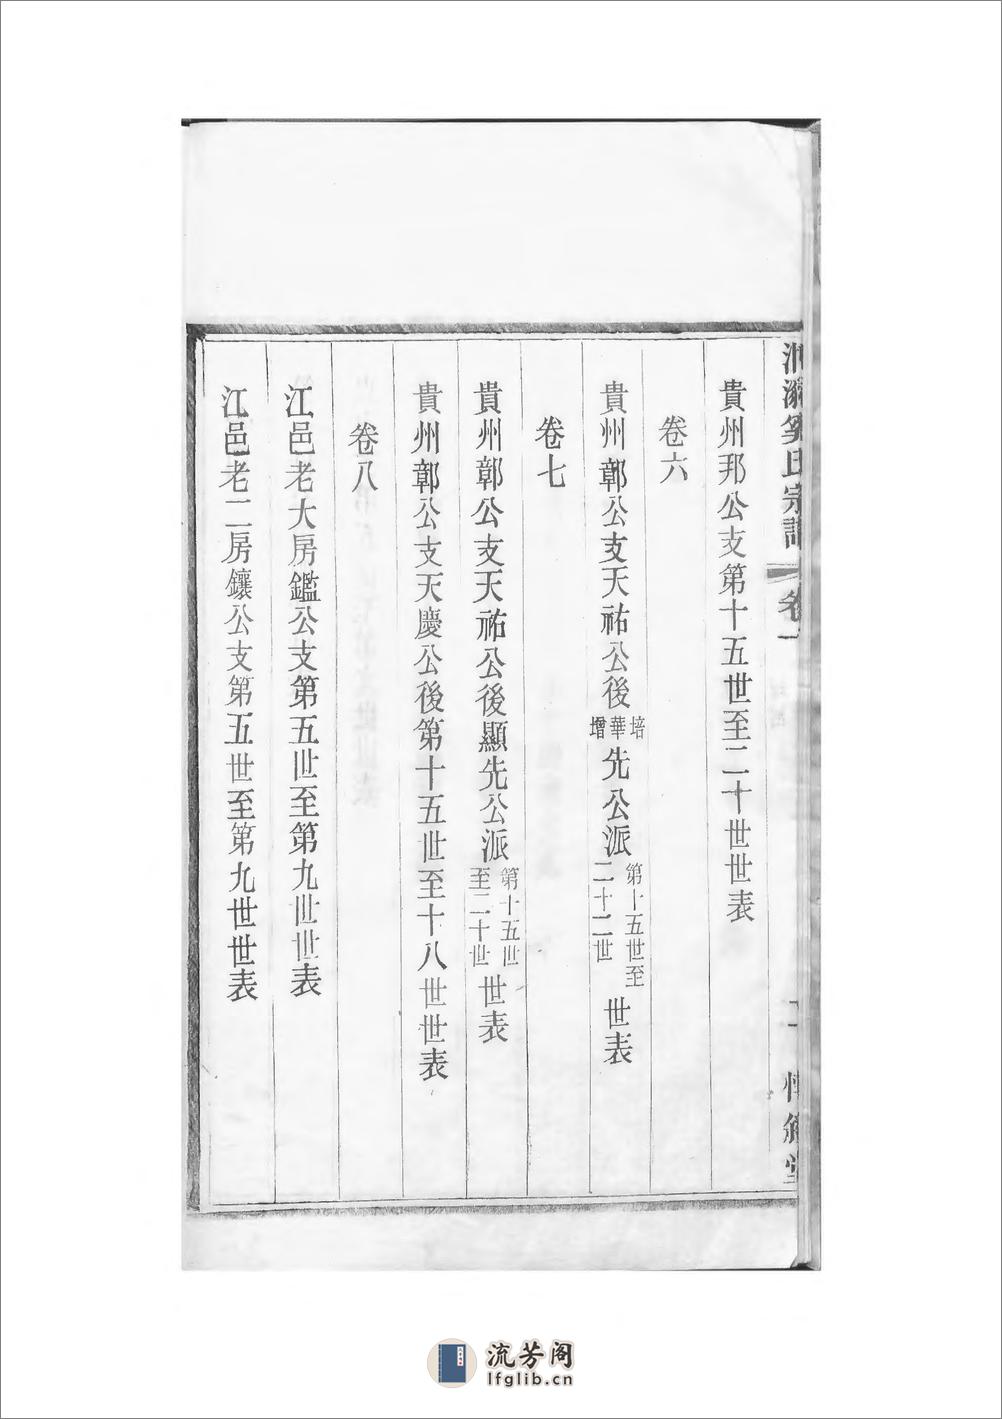 氏宗譜 卷一 二
貴州邦公支第十五世至二十世世表
卷六
貴州鄣公支天祐公後培華增先公派第十五世至二十二世世表
卷七
貴州鄣公支天祐公後顯先公派第十五世至二十世世表
貴州鄣公支天慶公後第十五世至十八世世表
卷八
江邑老大房鑑公支第五世至第九世世表
江邑老二房鑲公支第五世至第九世世表
流芳阁
lfglib.cn